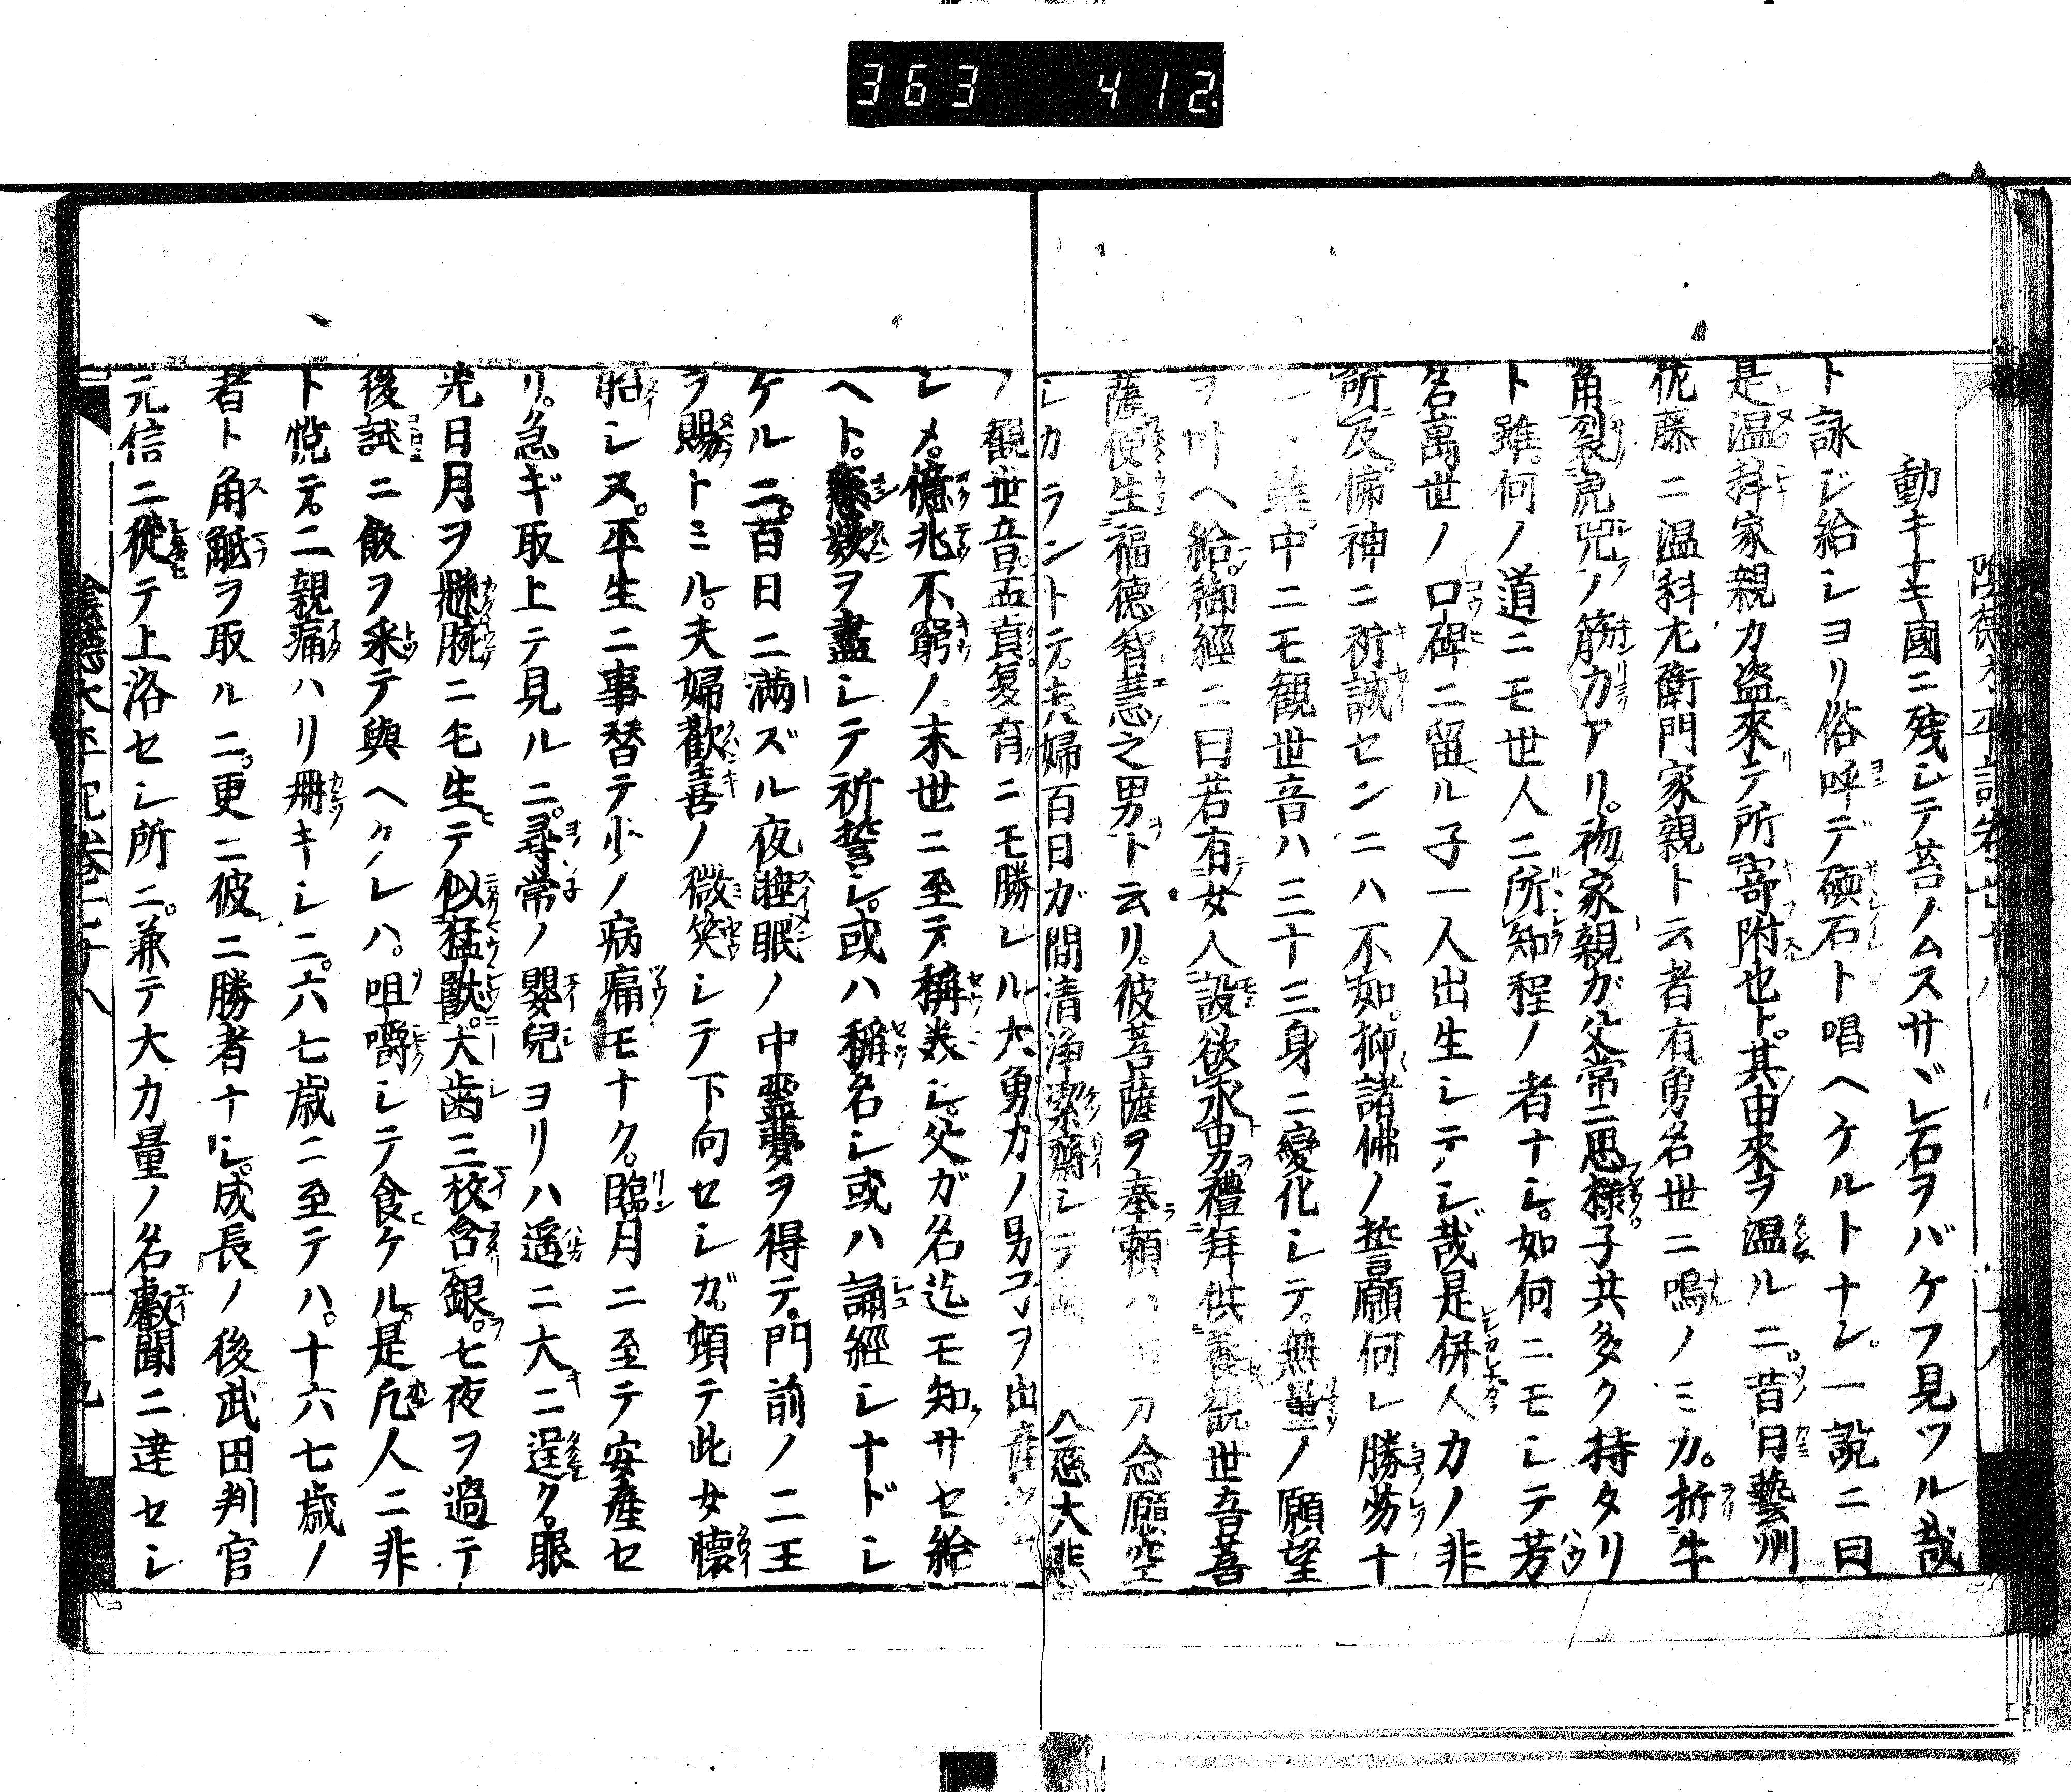 363 412
動キナキ國ニ残シテ苔ノムスサヾレ石ヲバケフ見ツル哉
ト詠ジ給シヨリ俗呼デ礇石ト唱ヘケルトナン。一説ニ曰
是温科家親カ盗來テ所寄附也ト。其由來ヲ温ルニ。昔月藝州
佐藤ニ温科左衛門家親ト云者有勇名世ニ鳴ノミカ。折牛
角裂虎兕ノ筋力アリ。初家親ガ父常ニ思様。子共多ク持タリ
ト雖。何ノ道ニモ世人ニ所知程ノ者ナシ。如何ニモシテ芳
名萬世ノ口碑ニ留ル子一人出生シテシ哉是併人力ノ非
所及佛神ニ祈誠センニハ不如。抑諸佛ノ誓願何レ勝劣ナ
シト雖。中ニモ観世音ハ三十三身ニ變化シテ。無量ノ願望
ヲ叶ヘ給。御經ニ曰若有女人設欲求男禮拜供養觀世音菩
薩便生福德智慧之男ト云リ。彼菩薩ヲ奉頼ハ 念願空
シカラントテ。夫婦百日ガ間清浄潔齋シテ 大慈大悲
ノ觀世音。孟賁夏育ニモ勝レル大勇力ノ男子ヲ出產
シメ。億兆不窮ノ末世ニ至テ稱美シ。父ガ名迄モ知サセ給
ヘト。懇歎ヲ盡シテ祈誓シ。或ハ稱名シ或ハ誦經シナドシ
ケルニ。百日ニ満ズル夜睡眠ノ中靈夢ヲ得テ。門前ノ二王
ヲ賜トミル。夫婦歡喜ノ微笑シテ下向セシガ。頓テ此女懐
胎シヌ。平生ニ事替テ少ノ病痛モナク。臨月ニ至テ安產セ
リ。急ギ取上テ見ルニ。尋常ノ嬰兒ヨリハ遙ニ大ニ逞ク。眼
光日月ヲ懸腕ニモ生テ似猛獣。大歯三枚含銀。七夜ヲ過テ
後試ニ飯ヲ采テ與ヘケレハ。咀嚼シテ食ケル。是凡人ニ非
ト悦テ。二親痛ハリ冊キシニ。六七歳ニ至テハ。十六七歳ノ
者ト角觝ヲ取ルニ。更ニ彼ニ勝者ナシ。成長ノ後武田判官
元信ニ従テ上洛セシ所ニ。兼テ大力量ノ名叡聞ニ達セシ
陰德太平記卷二十八
十九